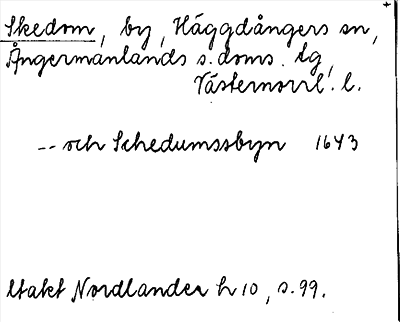 Skedom, by, Häggdångers sn,
Ångermanlands s. doms. tg,
Västernorrl. l.
-- och Schedumssbyn 1643
Utakt Nordlander h 10, s. 99.